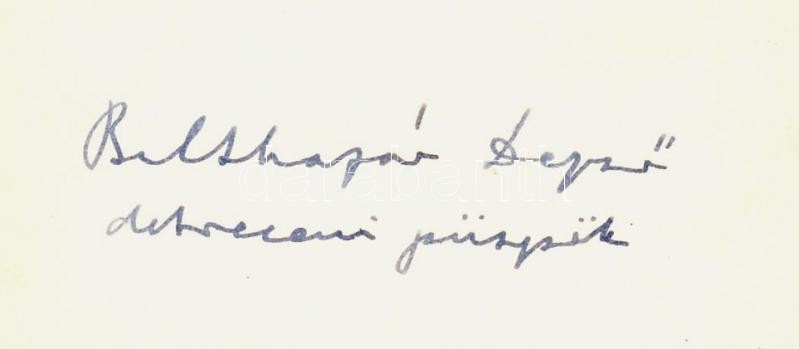 Balthazár Dezső
debreceni püspök
darabanth